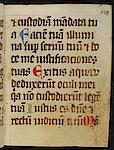 et custodiam mandata tu
a Faciē tuā illumi
na sup seruū tuū et do
ce me iustificationes
tuas Exitus aquar
deduxerūt oculi mei
qa nō custodierūt legē
tuā Iustus es dñe et
rectū iudiciū tuū